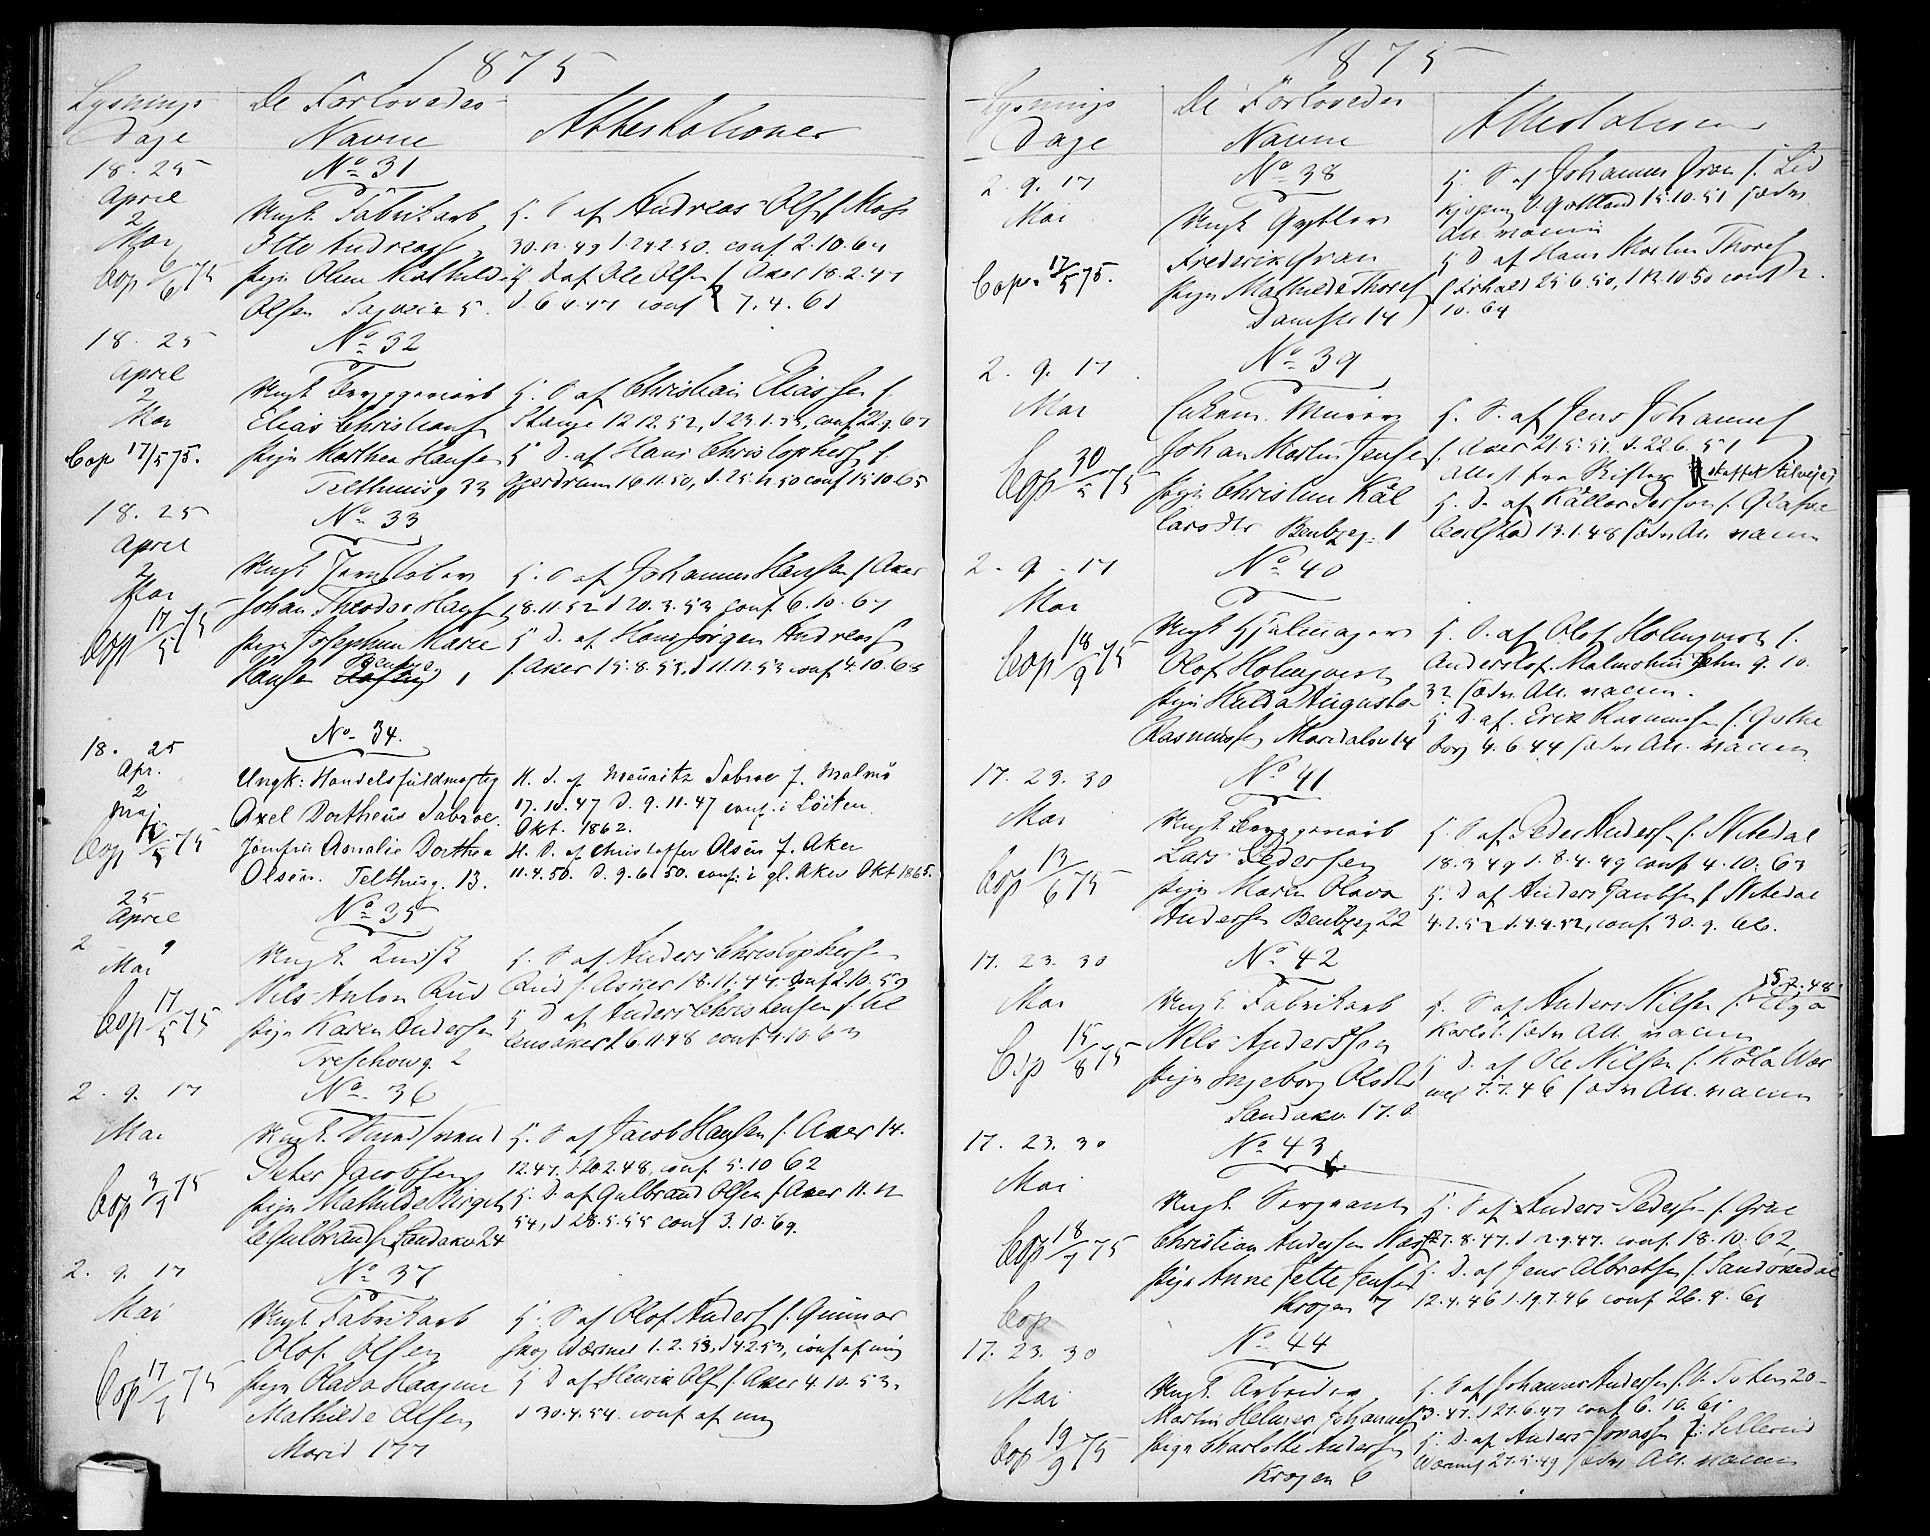 1875
Lysnings
Dage
De Forlovedes
Navne
Attestationer
18. 25
April
2
Mai
Cop 6/6 75
No 31
Ungk. Fabrikarb
Otto Andreas
Pige Oline Mathilde
Olsen 5.
H. S. af Andreas Olss f. Moss
30.12.49 d. 24.2.50. conf. 2.10.64
H. D. af Ole Olsen f. Aker 18.2.47
d. 6.4.47 conf 7.4.61
18. 25
April
2
Mai
Cop 17/5 75.
No 32
Ungk. Bryggeriarb
Elias Christians
Pige Marthea Hansen
Telthusg 33
H. S. af Christian Eliassen f.
Stange 12.12.52, d 23.1.53, conf 22.9.67
H. D. af Hans Christophers f.
Gjerdrum 16.11.50, d. 25.12.50 conf 15.10.65
18. 25
April
2
Mai
Cop 17/5 75
No 33
Ungk Jernstøber
Johan Theodor Hans
Pige Josephine Marie
Hansen Bentzeg 1
H. S. af Johannes Hansen f. Aker
18.11.52 d 20.3.53 conf. 6.10.67
H. D. af Hans Jørgen Andreas
f. Aker 15.8.53, d 11.12.53 conf 4.10.68
18. 25
Apr.
2
Maj
Cop 5 75
No 34.
Ungk: Handelsfuldmægtig
Axel Dortheus Sabroe.
Jomfru Amalie Dorthea
Olsen. Telthusg. 13.
H. S. af Mauritz Sabroe f. Malmö
17.10.47 D. 9.11.47 conf. i Löiten
Okt. 1862.
H. D. af Christoffer Olsen f. Aker
11.4.50. D. 9.6.50. conf: i gl. Aker Okt 1865.
25
April
2 9
Mai
Cop 17/5 75
No 35
Ungk.
Nils Anton Rud
Pige Karen Andersen
Treschowg. 2
H. S. af Anders Christophers
Rud f. Asker 18.11.44. conf 2.10.59
H. D. af Anders Christensen f. Ul
lensaker d 6.11.48 conf 4.10.63
2. 9. 17
Mai
Cop 3/7 75
No 36
Ungk.
Peter Jacobsen
Pige Mathilde Birgit
te Gulbrands Sandakv 24
H. S. af Jacob Hansen f. Aker 14.
12.47. d 20.2.48, conf. 5.10 62
H. D. af Gulbrand Olsen f. Aker 11.12
54, d 28.5.55 conf 3.10.69.
2. 9. 17
Mai
Cop 17/ 75
No 37
Ungk Fabrikarb
Olof Olsen
Pige Olava Haagine
Mathilde Olsen
Marid 177
H. S. af Olof Anders f. Gunnar
skog Wärmel 1.2.53, d 4.2.53, conf af mig
H. D. af Henrik Ols f. Aker 4.10.53.
d 30.4.54. conf af mig
1875
Lysnings
Dage
De Forlovedes
Navne
Attestationer
2. 9. 17
Mai
Cop. 17/5 75.
No 38
Ungk Gytler
Frederik Gran
Pige Mathilde Thores
Damstr 14
H. S. af Johannes Gran f. Lid
kjøping 15.10.51 sædv
Att. vacui
H. D. af Hans Martin Thores
f. 25.6.50, d 12.10.50 conf 2.
10.64
2. 9. 17
Mai
Cop 30/5 75
No 39
Enkem. Murer
Johan Martin Jensen
Pige Christine Käl
larsdtr Bentzeg. 1
H. S. af Jens Johannes
f. Aker 21.5.51. d. 22.6.51
Attest fra skaffet tilveje
H. D. af Kållar Persson f.
Carlstad 13.1.48 sædv Att. vacui
2. 9. 17
Mai
Cop 18/9 75
No 40
Ungk Hjulmager
Olof Holmqvist
Pige Hulda Augusta
Rasmuss Maridalsv 14
H. S. af Olof Holmqvist f.
Anderslof. Malmöhus Lehn 9.10.
32 sædv. Att. vacui.
H. D. af Erik Rasmussen f. Gothe
borg 4.6.44 sædv Att. vacui
17. 23. 30
Mai
Cop 13/6 75
No 41
Ungk Bryggeriarb
Lars Pedersen
Pige Maren Olava
Andersen Bentzeg 22
H. S. af Peder Anders f. Nitedal
18.3.49 d. 8.4.49 conf 4.10.63
H. D. af Anders f. Nitedal
4.2.52 d. 4.4.52, conf. 30.9.66.
17. 23. 30
Mai
Cop 15/8 75
No 42
Ungk. Fabrikarb
Nils Andersson
Pige Ingeborg Olsdtr
Sandakv. 17. b
H. S. af Anders Nilsen f. Elga 5.7.48
Karlst. sædv Att. vacui
H. D. af Ole Nilsen f. Köla Wär
mel 7.7.46 sædv Att. vacui
17. 23. 30
Mai
Cop 18/7 75
Cop
No 43
Ungk. Sergeant
Christian Andersen Næss
Pige Anne Jette Jensen
Krogen 7
H. S. af Anders Pedersen f. Grue
27.8.47. d 12.9.47. conf. 18.10.62,
H. D. af Jens Albretsen f. Sandøkedal
12.4.46 d. 19.7.46 conf 26.9.61
17. 23. 30
Mai
Cop 19/9 75
No 44
Ungk. Arbeider
Martin Helmer Johannes
Pige Charlotte Andersen
Krogen 6
H. S. af Johannes Andersen f. V. Toten 20.
3.47. d 27.6.47 conf 6.10.61
H. D. af Anders Jonassen f. Sillerud
Wärmel 27.5.49 sædv Att. vacui